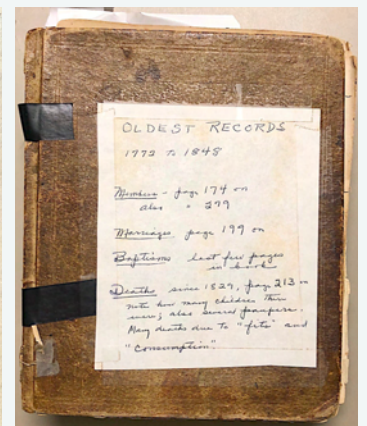 OLDEST RECORDS
1773 to 1848
Members - page 174 on
also " 279
Marriages page 199 on
Baptisms last few pages
in book
Deaths since 1829, page 213 on
note how many children there
were; also several paupers.
Many deaths due to "fits" and
"consumption"